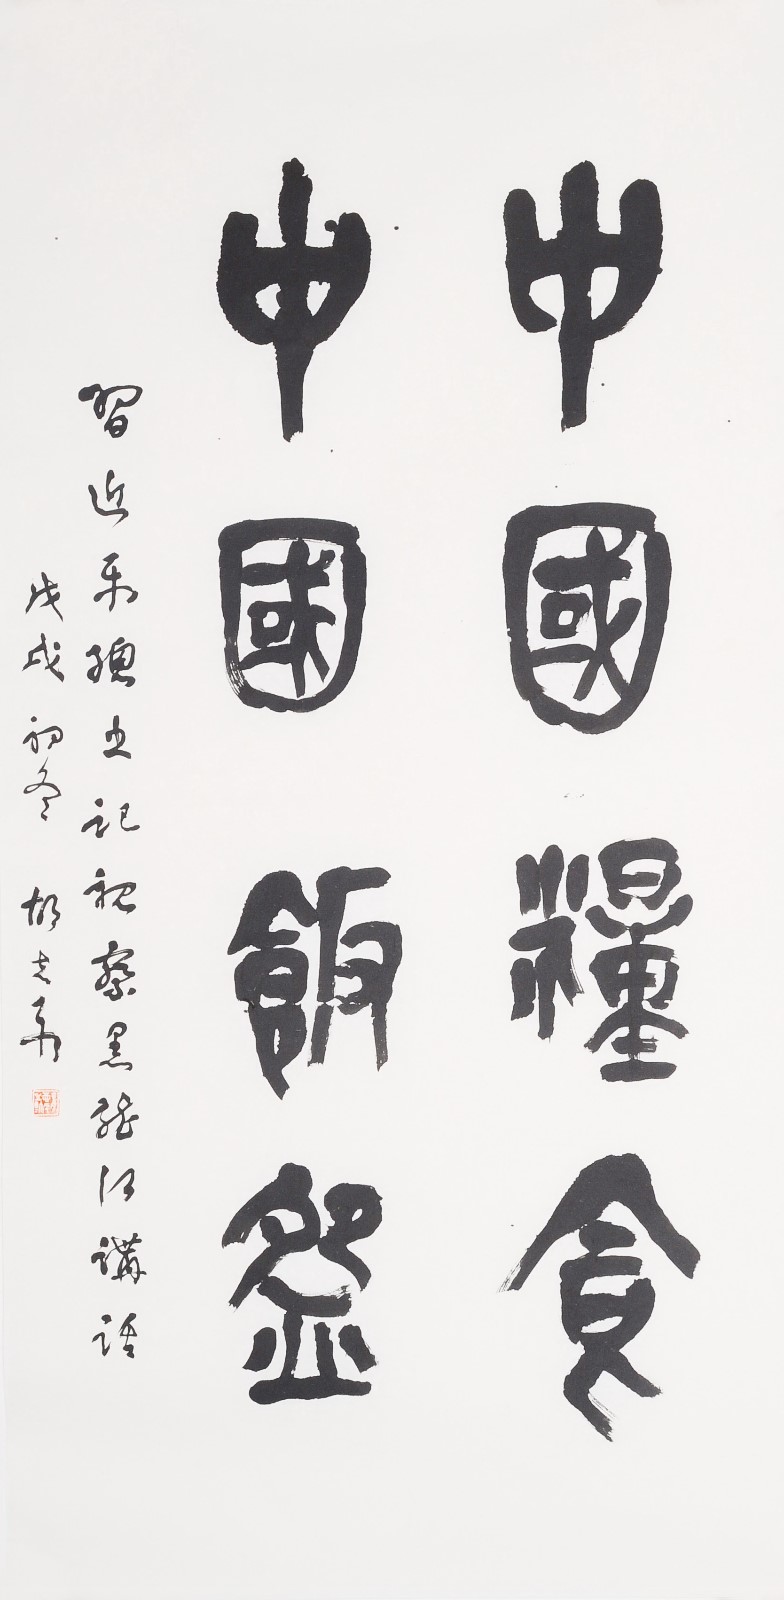 中國糧食
中國飯盌
習近平總書記視察黑龍江講話
戊戌初冬 胡志平